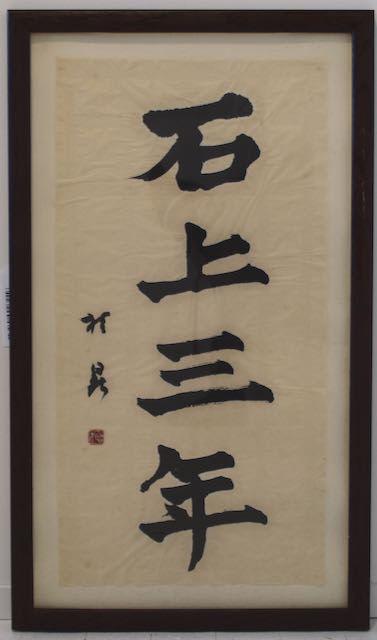 石上三年